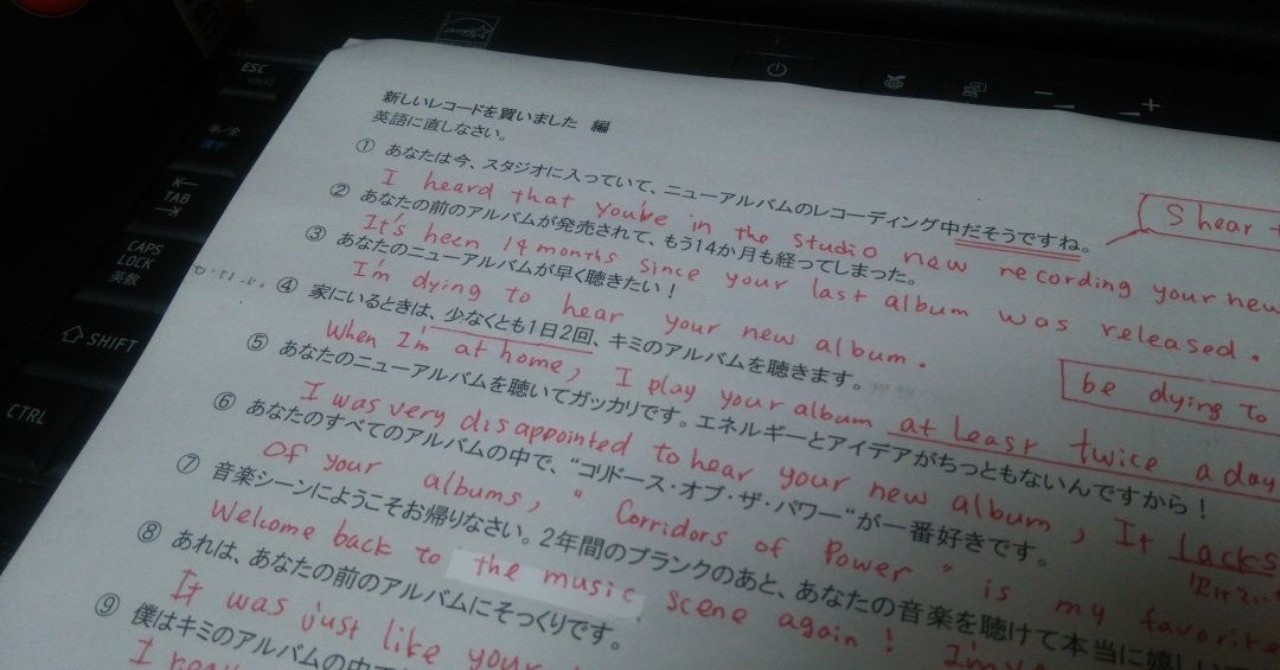 新しいレコードを買いました 編
英語に直しなさい。
① あなたは今、スタジオに入っていて、ニューアルバムのレコーディング中だそうですね。
I heard that you're in the studio now recording your new
S hear
② あなたの前のアルバムが発売されて、もう14か月も経ってしまった。
It's been 14 months since your last album was released.
③ あなたのニューアルバムが早く聴きたい！
I'm dying to hear your new album.
be dying to
④ 家にいるときは、少なくとも1日2回、キミのアルバムを聴きます。
When I'm at home, I play your album at least twice a day
⑤ あなたのニューアルバムを聴いてガッカリです。エネルギーとアイデアがちっともないんですから！
I was very disappointed to hear your new album, It lacks
⑥ あなたのすべてのアルバムの中で、“コリドース・オブ・ザ・パワー“が一番好きです。
Of your albums, " Corridors of Power " is my favorite
⑦ 音楽シーンにようこそお帰りなさい。2年間のブランクのあと、あなたの音楽を聴けて本当に嬉し
Welcome back to the music scene again! I'm
⑧ あれは、あなたの前のアルバムにそっくりです。
It was just like your
⑨ 僕はキミのアルバムの中で
I
ESC
半/全
漢字
TAB
CAPS LOCK
英数
SHIFT
CTRL